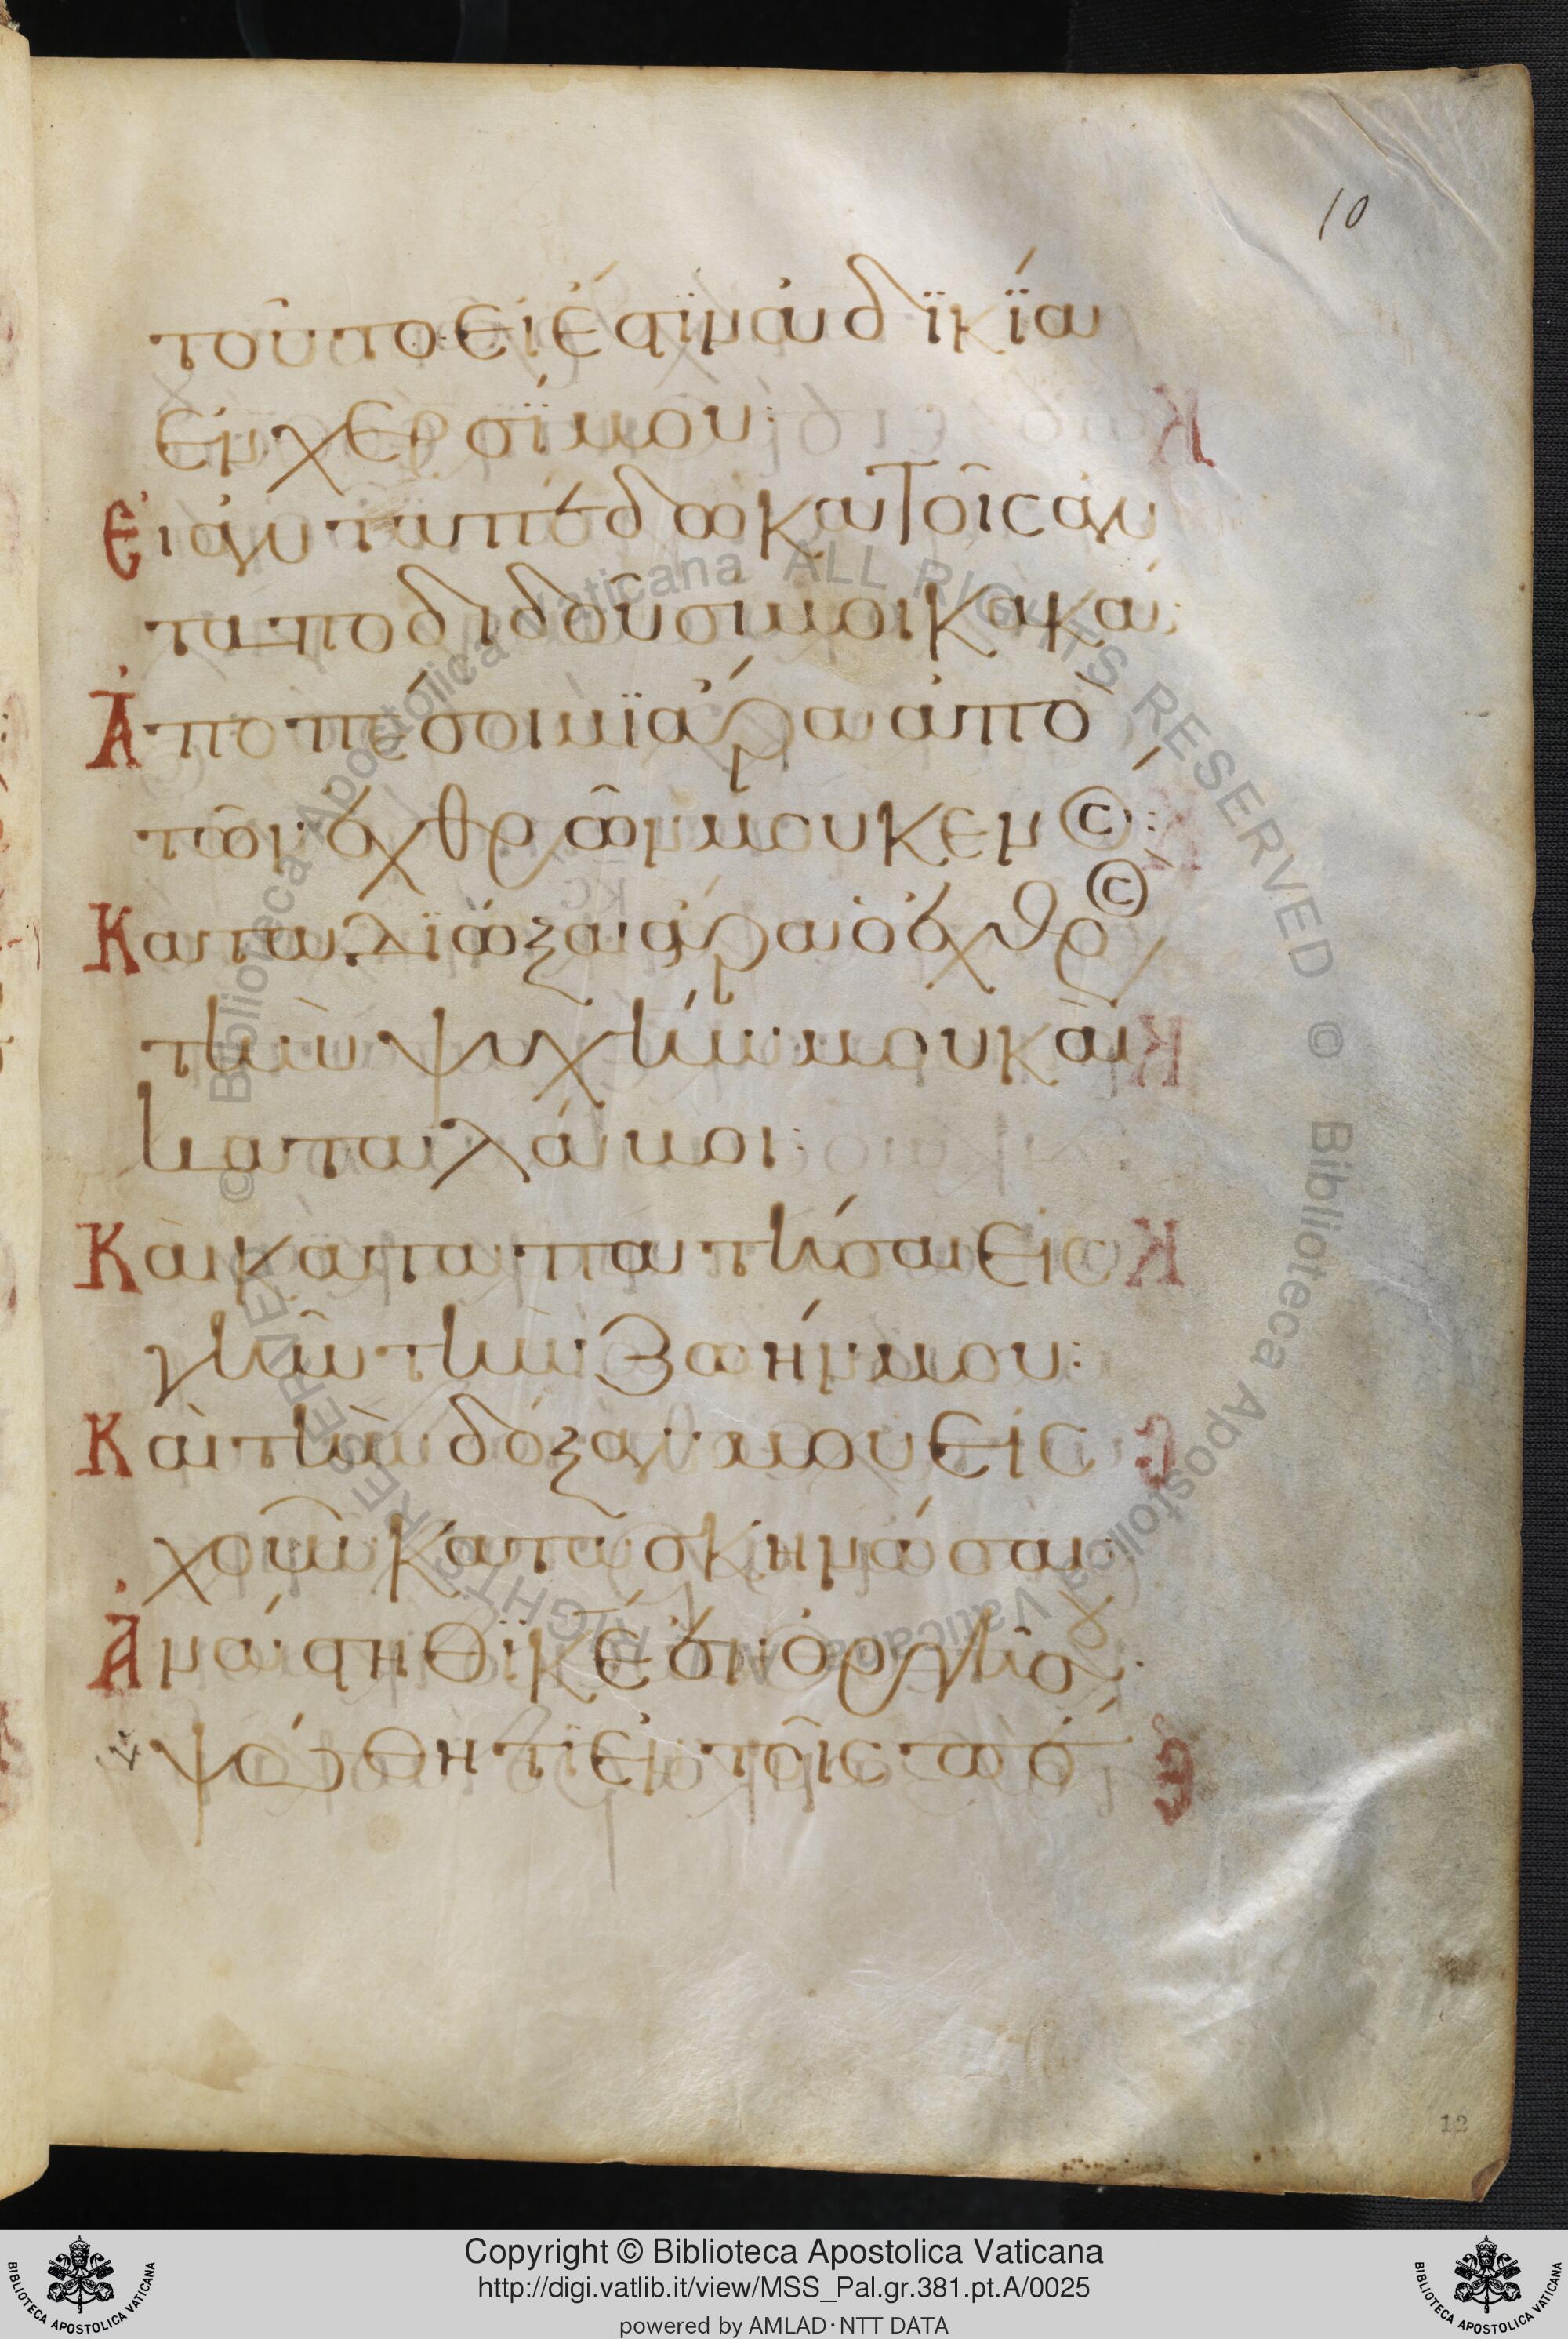 10
τοῦτο εἰ ἔστϊν ἀδϊκΐα
ἐν χερσΐν μου:
Εἰ ἀνταπέδωκα τοῖς ἀν
ταποδιδοῦσιν μοι κακά:
Ἀποπέσοιν ἄρα ἀπὸ
τῶν ἐχθρῶν μου κενός:
Καταδϊώξαι ἄρα ὁ ἐχθρός
τὴν ψυχήν μου καὶ
καταλάβοι:
Καὶ καταπατήσαι εἰς
γῆν τὴν ζωήν μου:
Καὶ τὴν δόξαν μου εἰς
χοῦν κατασκηνώσαι
Ἀνάστηθϊ κε ἐν ὀργῆ σου:
ὑψώθητϊ ἐν τοῖς πέ
12
© Biblioteca Apostolica Vaticana ALL RIGHTS RESERVED © Biblioteca Apostolica Vaticana ALL RIGHTS RESERVED
BIBLIOTECA APOSTOLICA VATICANA
Copyright © Biblioteca Apostolica Vaticana
http://digi.vatlib.it/view/MSS_Pal.gr.381.pt.A/0025
powered by AMLAD·NTT DATA
BIBLIOTECA APOSTOLICA VATICANA